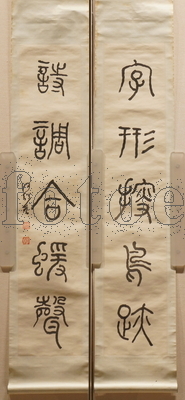 字形搜鳥跡
詩調合猨聲
fotoe